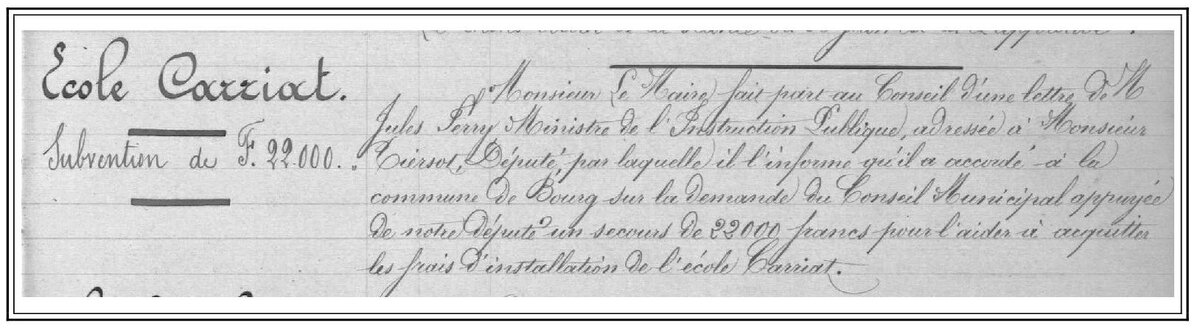 École Carriat.
Subvention de F. 22.000.
Monsieur Le Maire, fait part au Conseil d'une lettre de M
Jules Ferry Ministre de l'Instruction Publique, adressée à Monsieur
Tiersot, Député, par laquelle il l'informe qu'il a accordé à la
commune de Bourg sur la demande du Conseil Municipal appuyée
de notre député un secours de 22000 francs pour l'aider à acquitter
les frais d'installation de l'école Carriat.